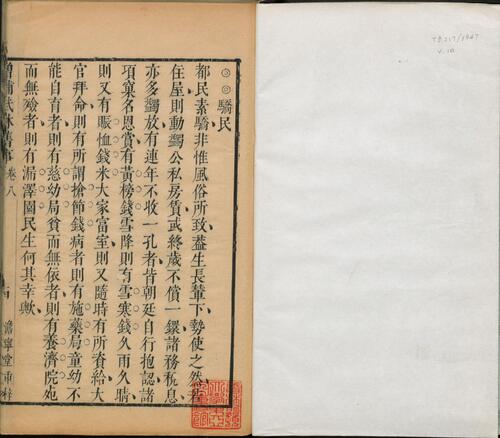 驕民
都民素驕非惟風俗所致葢生長輦下勢使之然若
住屋則動蠲公私房賃或終歲不償一鐶諸務稅息
亦多蠲放有連年不收一孔者皆朝廷自行抱認諸
項窠名恩賞有黃榜錢雪降則有雪寒錢久雨久晴
則又有賑恤錢米大家富室則又隨時有所資給大
官拜命則有所謂搶節錢病者則有施藥局童幼不
能自育者則有慈幼局貧而無依者則有養濟院死
而無殮者則有漏澤園民生何其幸歟
增補武林舊事 卷八
澹寧堂重梓